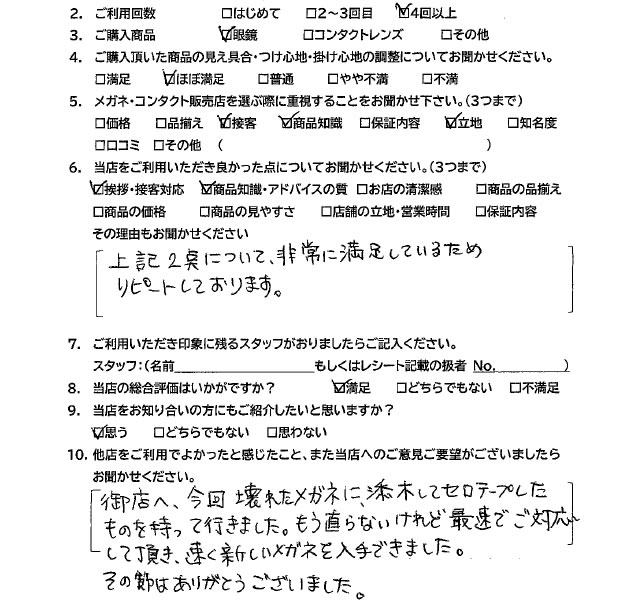 2. ご利用回数 □はじめて □2～3回目 ☑4回以上
3. ご購入商品 ☑眼鏡 □コンタクトレンズ □その他
4. ご購入頂いた商品の見え具合・つけ心地・掛け心地の調整についてお聞かせください。
□満足 ☑ほぼ満足 □普通 □やや不満 □不満
5. メガネ・コンタクト販売店を選ぶ際に重視することをお聞かせ下さい。(3つまで)
□価格 □品揃え ☑接客 ☑商品知識 □保証内容 ☑立地 □知名度
□口コミ □その他 ( )
6. 当店をご利用いただき良かった点についてお聞かせください。(3つまで)
☑挨拶・接客対応 ☑商品知識・アドバイスの質 □お店の清潔感 □商品の品揃え
□商品の価格 □商品の見やすさ □店舗の立地・営業時間 □保証内容
その理由もお聞かせください
上記2点について、非常に満足しているため
リピートしております。
7. ご利用いただき印象に残るスタッフがおりましたらご記入ください。
スタッフ:(名前 もしくはレシート記載の扱者 No. )
8. 当店の総合評価はいかがですか? ☑満足 □どちらでもない □不満足
9. 当店をお知り合いの方にもご紹介したいと思いますか?
☑思う □どちらでもない □思わない
10. 他店をご利用でよかったと感じたこと、また当店へのご意見ご要望がございましたら
お聞かせください。
御店へ、今回壊れたメガネに、添木してセロテープした
ものを持って行きました。もう直らないけれど最速でご対応
して頂き、速く新しいメガネを入手できました。
その節はありがとうございました。